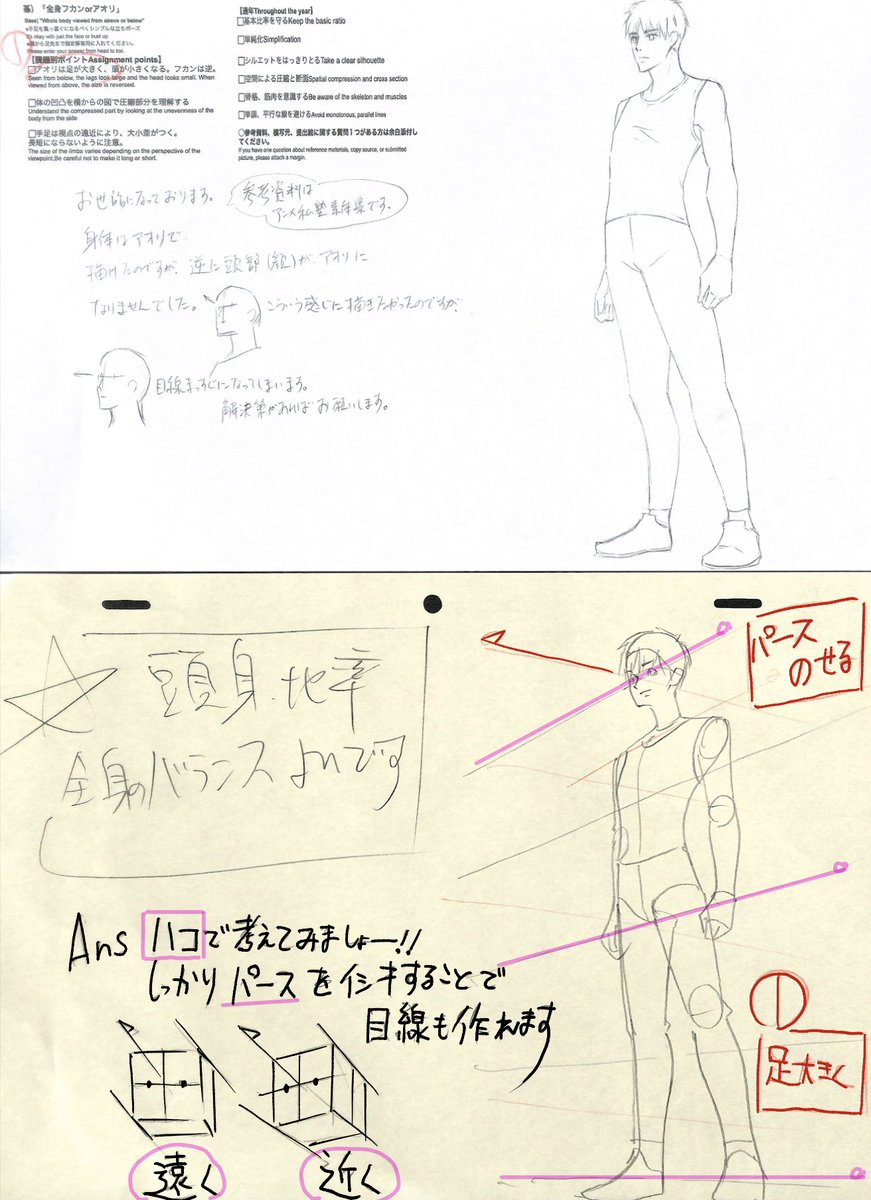 「全身フカンorアオリ」
"Whole body viewed from above or below"
【課題別ポイントAssignment points】
アオリは足が大きく、頭が小さくなる。フカンは逆。
Seen from below, the legs look large and the head looks small. When
viewed from above, the size is reversed.
□体の凹凸を横からの図で圧縮部分を理解する
Understand the compressed part by looking at the unevenness of the
body from the side
□手足は視点の遠近により、大小差がつく。
長短にならないように注意。
The size of the limbs varies depending on the perspective of the
viewpoint.Be careful not to make it long or short.
【通年Throughout the year】
□基本比率を守るKeep the basic ratio
□単純化Simplification
□シルエットをはっきりとるTake a clear silhouette
□空間による圧縮と断面Spatial compression and cross section
□骨格、筋肉を意識するBe aware of the skeleton and muscles
□単調、平行な線を避けるAvoid monotonous, parallel lines
○参考資料、模写元、提出絵に関する質問1つがある方は余白添付し
てください。
If you have one question about reference materials, copy source, or submitted
picture, please attach a margin.
お世話になっております。
参考資料は
アニメ私塾素体集です。
身体はアオリで
描けたのですが、逆に頭部(顔)が、アオリに
なりませんでした。
こういう感じに描きたかったのですが、
目線まっすぐになってしまいます。
解決策があればお願いします。
パース
のせる
頭身、比率
全身のバランスよいです
Ans ハコで考えてみましょー!!
しっかりパースをイシキすることで
目線も作れます
①
足大きく
遠く
近く